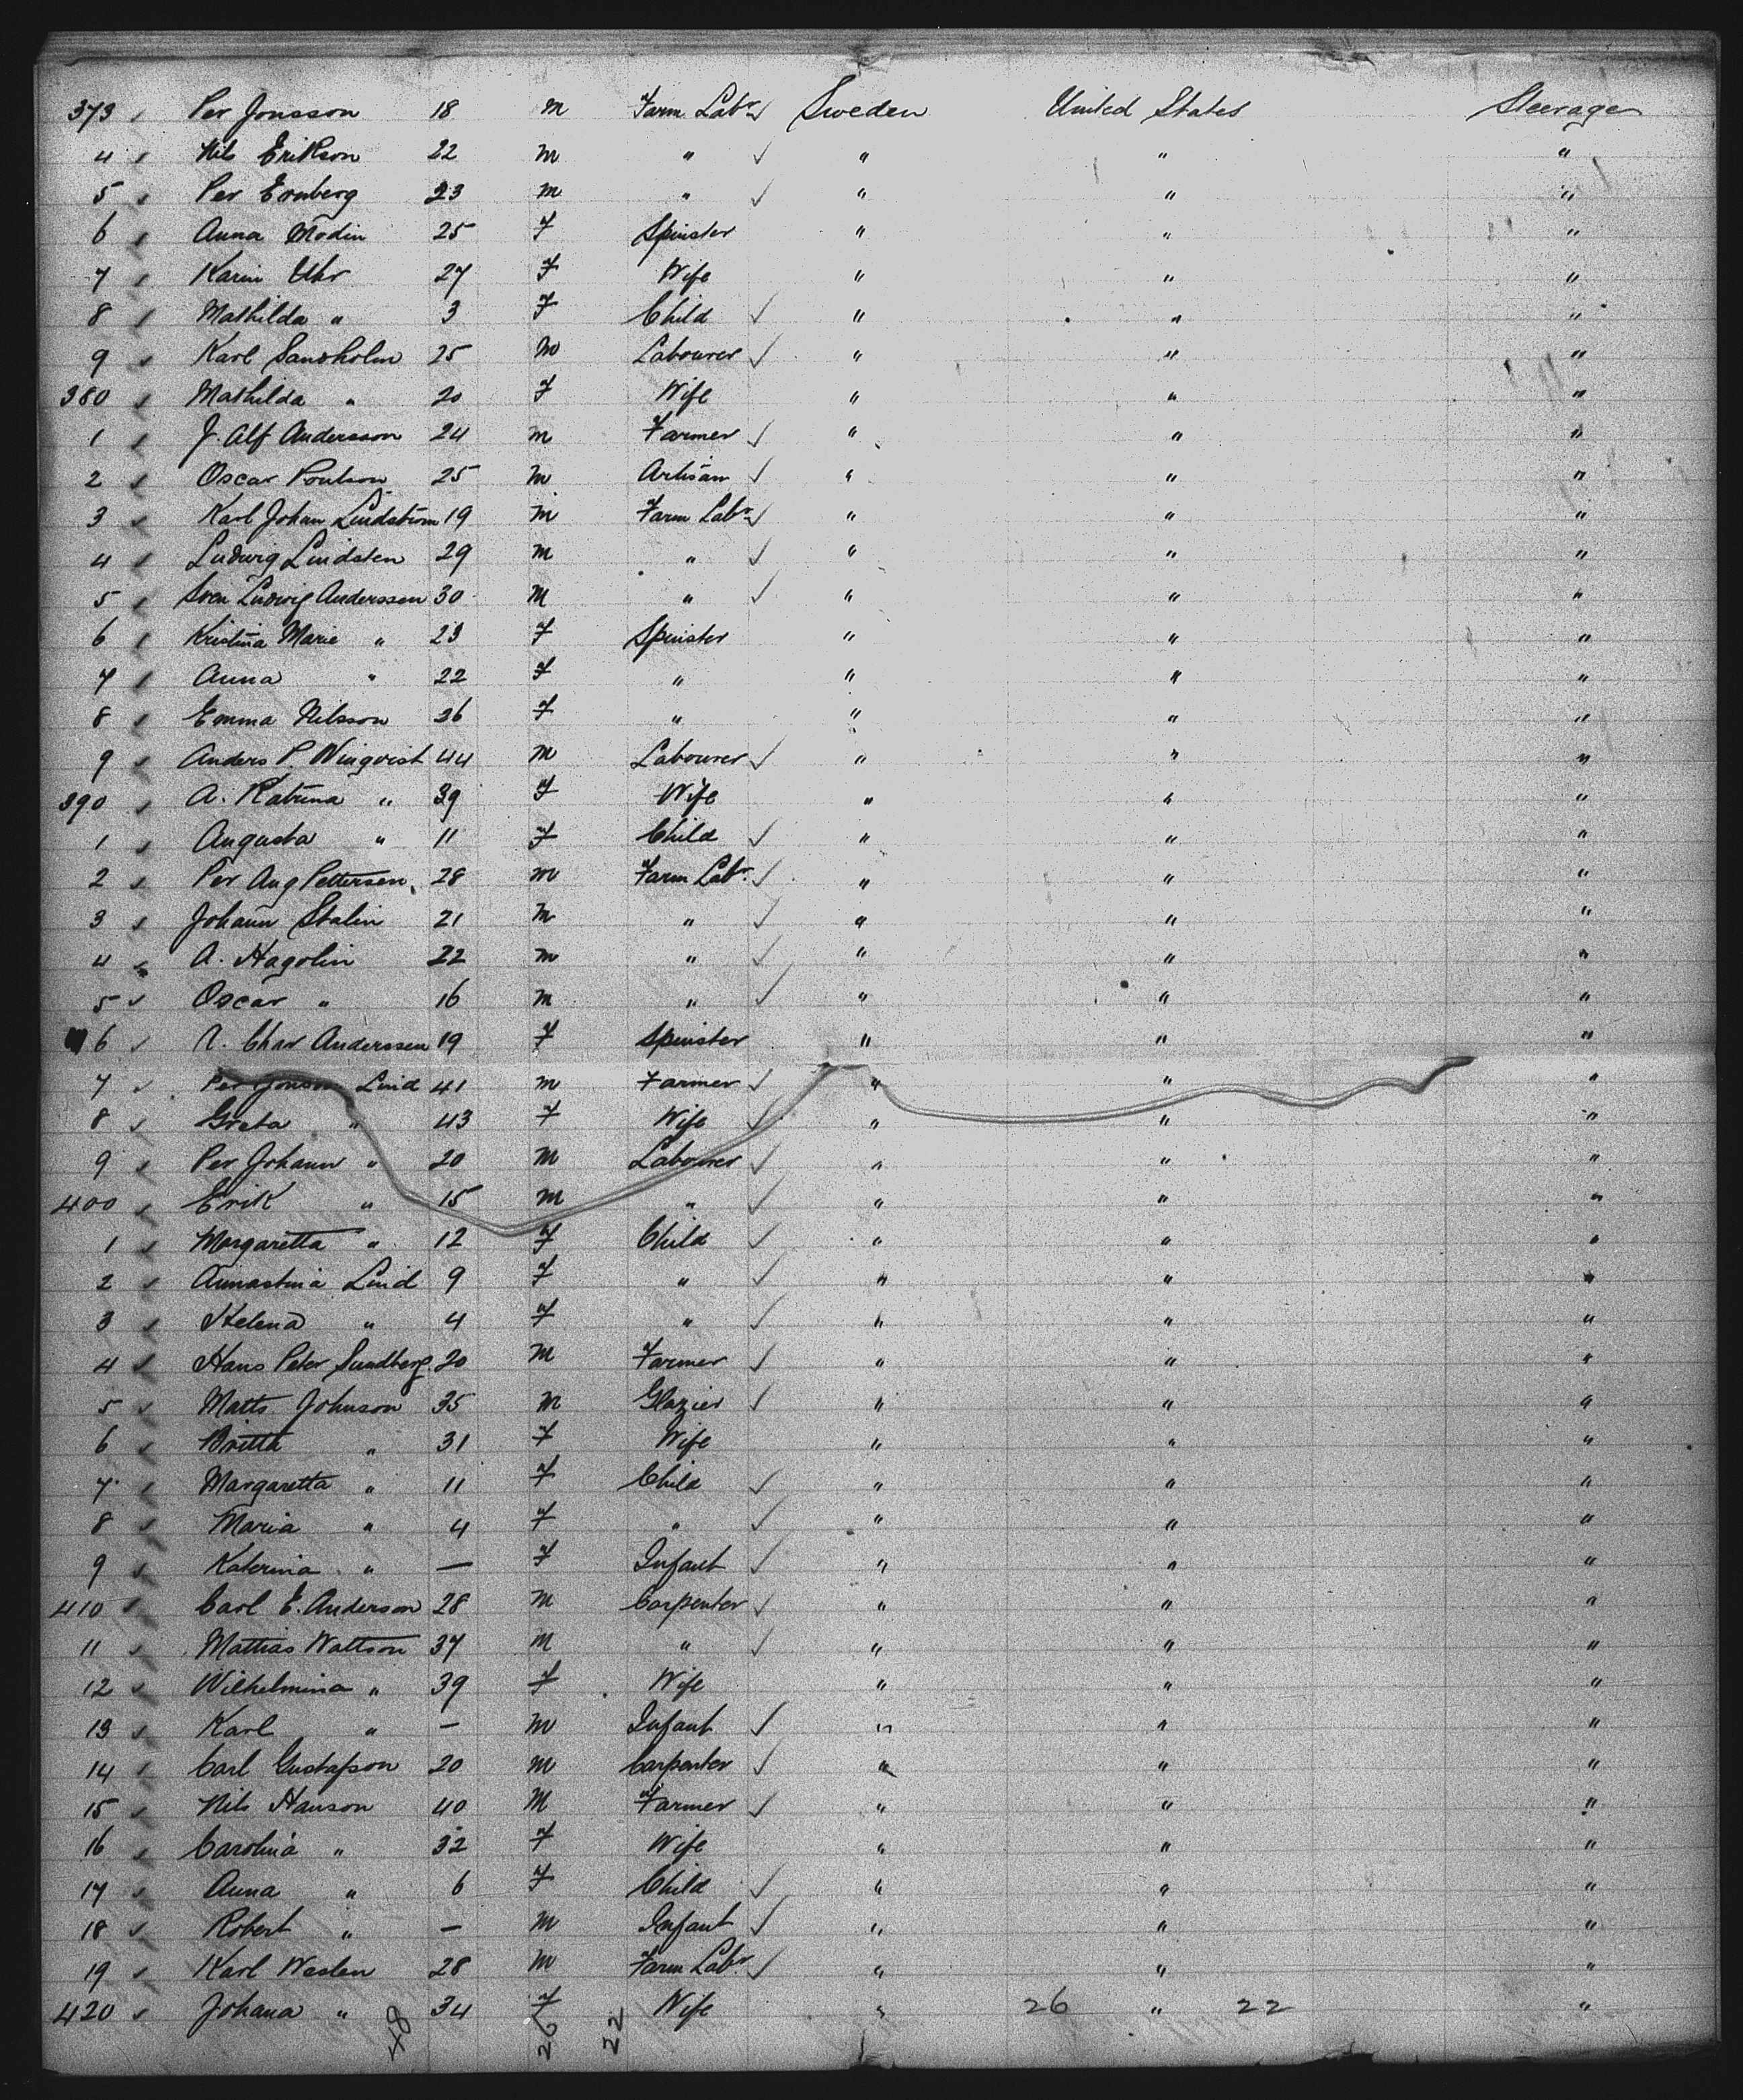 373 Per Jonsson 18 m Farm Labr Sweden United States Steerage
4 Nils Erikson 22 m " " " "
5 Per Ernberg 23 m " " " "
6 Anna Modin 25 F Spinster " " "
7 Karin Uhr 27 F Wife " " "
8 Mathilda " 3 F Child " " "
9 Karl Sandholm 25 m Labourer " " "
380 Mathilda " 20 F Wife " " "
1 J. Alf Andersson 24 m Farmer " " "
2 Oscar Poulson 25 m Artisan " " "
3 Karl Johan Lindstrom 19 m Farm Labr " " "
4 Ludwig Lindsten 29 m " " " "
5 Sven Ludwig Anderssen 30 m " " " "
6 Kristina Marie " 23 F Spinster " " "
7 Anna " 22 F " " " "
8 Emma Nilsson 26 F " " " "
9 Anders P. Winqvist 44 m Labourer " " "
390 A. Katrina " 39 F Wife " " "
1 Augusta " 11 F Child " " "
2 Per Aug Pettersen 28 m Farm Labr " " "
3 Johann Stalin 21 m " " " "
4 A. Hagolin 22 m " " " "
5 Oscar " 16 m " " " "
6 Char Anderssen 19 F Spinster " " "
7 Per Jonson Lind 41 m Farmer " " "
8 Greta " 43 F Wife " " "
9 Per Johann " 20 m Labourer " " "
400 Erik " 15 m " " " "
1 Margaretta " 12 F Child " " "
2 Annastina Lind 9 F " " " "
3 Helena " 4 F " " " "
4 Hans Peter Sundberg 20 m Farmer " " "
5 Matts Johnson 35 m Glazier " " "
6 Britta " 31 F Wife " " "
7 Margaretta " 11 F Child " " "
8 Maria " 4 F " " " "
9 Katerina " — F Infant " " "
410 Carl E. Anderson 28 m Carpenter " " "
11 Mattias Wattson 37 m " " " "
12 Wilhelmina " 39 F Wife " " "
13 Karl " — m Infant " " "
14 Carl Gustafson 20 m Carpenter " " "
15 Nils Hanson 40 m Farmer " " "
16 Carolina " 32 F Wife " " "
17 Anna " 6 F Child " " "
18 Robert " — m Infant " " "
19 Karl Weslen 28 m Farm Labr " " "
420 Johana " 34 F Wife " 26 " 22 "
48 26 22